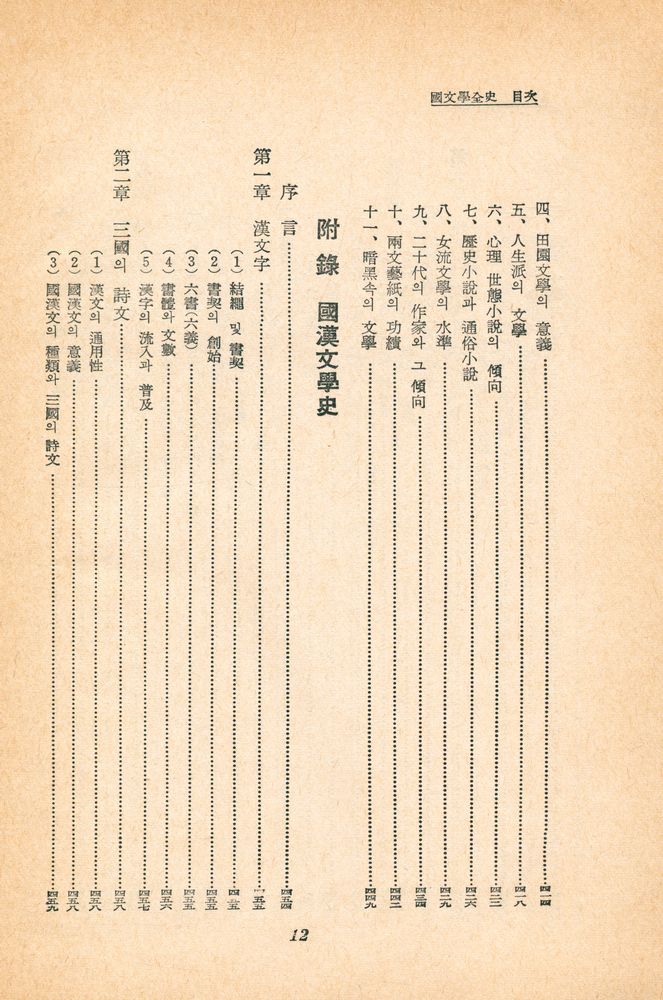 國文學全史 目次
四、田園文學의 意義……四一四
五、人生派의 文學……四一八
六、心理 世態小說의 傾向……四二三
七、歷史小說과 通俗小說……四二六
八、女流文學의 水準……四二九
九、二十代의 作家와 그 傾向……四三四
十、兩文藝紙의 功績……四四二
十一、暗黑속의 文學……四四九
附錄 國漢文學史
序言……四五四
第一章 漢文字……
(1) 結繩 및 書契……
(2) 書契의 創始……四五五
(3) 六書(六義)……四五五
(4) 書體와 文數……四五六
(5) 漢字의 流入과 普及……四五七
第二章 三國의 詩文……四五八
(1) 漢文의 通用性……四五八
(2) 國漢文의 意義……四五八
(3) 國漢文의 種類와 三國의 詩文……四五九
12